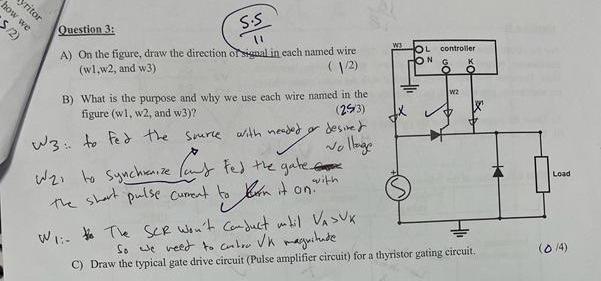 yritor
how we
5/2)
Question 3:
5.5
11
A) On the figure, draw the direction of signal in each named wire
(w1,w2, and w3) (1/2)
B) What is the purpose and why we use each wire named in the
figure (w1, w2, and w3)? (2.5/3)
W3:- to fed the source with needed or desired
voltage
W2: to synchronize and fed the gate with
the short pulse current to turn it on.
W1:- The SCR won't conduct until VA>VK
So we need to control VK magnitude
C) Draw the typical gate drive circuit (Pulse amplifier circuit) for a thyristor gating circuit. (0/4)
W3
L controller
N G K
W2
W1
X
X
S
+
Load